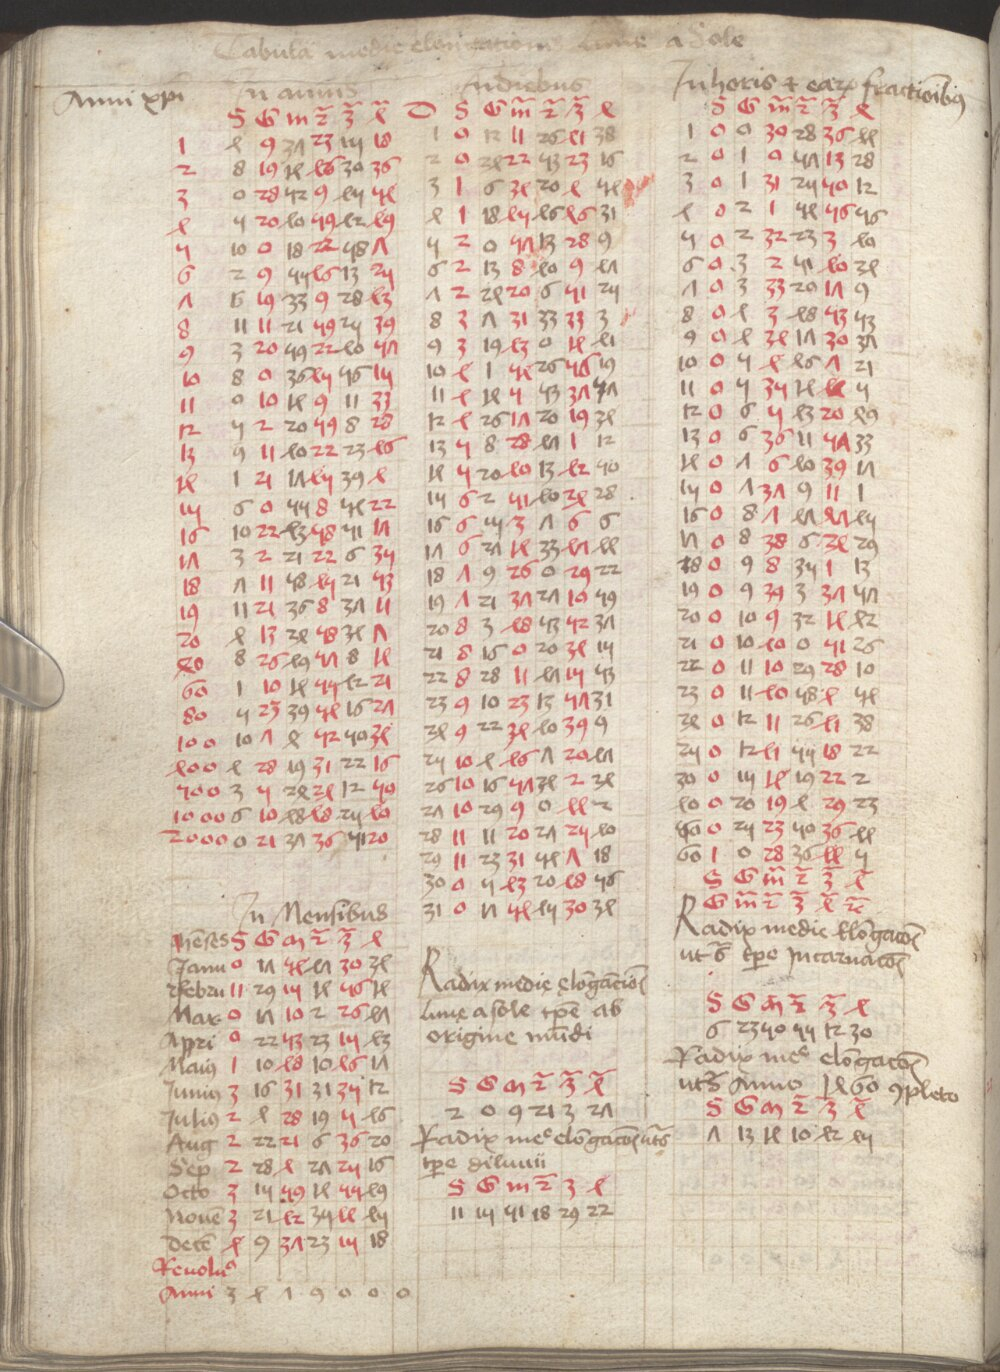 Tabula medie elongationis lune a Sole
Anni xpi In annis
S G m 2 3 4
1 4 9 37 23 15 18
2 8 19 14 46 30 36
3 0 28 52 9 45 54
4 5 20 40 59 42 49
5 10 0 18 22 58 7
6 2 9 55 46 13 25
7 6 19 33 9 28 43
8 11 11 21 59 25 39
9 3 20 59 22 40 57
10 8 0 36 45 56 15
11 0 10 14 9 11 33
12 5 2 20 59 8 28
13 9 11 40 22 23 46
14 1 21 17 45 39 4
15 6 0 55 8 54 22
16 10 22 43 58 51 17
17 3 2 21 22 6 35
18 7 11 58 45 21 53
19 11 21 36 8 37 11
20 4 13 24 58 34 7
40 8 26 49 57 8 14
60 1 10 14 55 42 21
80 5 23 39 54 16 27
100 10 7 4 52 50 34
400 4 28 19 31 22 16
500 3 5 24 24 12 50
1000 6 10 48 48 25 40
2000 0 21 37 36 51 20
In Mensibus
Menses S G m 2 3 4
Janu 0 17 54 47 30 34
Febru 11 29 15 14 56 14
Mar 0 17 10 2 26 47
Apri 0 22 53 23 15 43
Maius 1 10 48 10 46 17
Junius 3 16 31 31 35 12
Julius 2 4 28 19 5 46
Aug 2 22 21 6 36 20
Sep 2 28 4 27 25 16
Octo 3 15 59 14 55 49
Novē 3 21 42 35 44 45
Decē 4 9 37 23 15 18
Revoluº
Anni 3 4 1 9 0 0 0
In diebus
D S G m 2 3 4
1 0 12 11 26 41 38
2 0 24 22 53 23 16
3 1 6 34 20 4 54
4 1 18 45 46 46 31
5 2 0 57 13 28 9
6 2 13 8 40 9 47
7 2 24 20 6 51 25
8 3 7 31 33 33 3
9 3 19 43 0 14 41
10 4 1 54 26 56 19
11 4 14 5 53 37 57
12 4 26 17 20 19 34
13 5 8 28 47 1 12
14 5 20 40 13 42 50
15 6 2 51 40 24 28
16 6 15 3 7 6 6
17 6 27 14 33 47 44
18 7 9 26 0 29 22
19 7 21 37 27 10 59
20 8 3 48 53 52 37
21 8 16 0 20 34 15
22 8 28 11 47 15 53
23 9 10 23 13 57 31
24 9 22 34 40 39 9
25 10 4 46 7 20 47
26 10 16 57 34 2 24
27 10 29 9 0 44 2
28 11 11 20 27 25 40
29 11 23 31 54 7 18
30 0 5 43 20 48 56
31 0 17 54 47 30 34
Radix medie elōgacion̄
lune a sole tp̄e ab
origine mūdi
S G m 2 3 4
2 0 9 21 3 27
Radix meᵉ elōgacon̄ ut s̄
tp̄e diluuii
S G m 2 3 4
11 15 51 18 29 22
In horis & earꝝ fractionibꝯ
S G m 2 3 4
1 0 0 30 28 36 44
2 0 1 0 57 13 28
3 0 1 31 25 50 12
4 0 2 1 54 56 56
5 0 2 32 23 3 40
6 0 3 2 51 40 34
7 0 3 33 20 17 9
8 0 4 3 48 53 53
9 0 4 34 17 30 37
10 0 5 4 46 7 21
11 0 5 35 14 44 5
12 0 6 5 43 20 49
13 0 6 36 11 57 33
14 0 7 6 40 39 17
15 0 7 37 9 11 1
16 0 8 7 47 47 45
17 0 8 38 6 24 29
18 0 9 8 35 1 13
19 0 9 39 3 37 57
20 0 10 9 32 14 42
21 0 10 40 0 51 26
22 0 11 10 29 28 10
23 0 11 40 58 4 54
24 0 12 11 26 41 38
25 0 12 41 55 18 22
30 0 15 14 19 22 2
40 0 20 19 4 29 23
50 0 25 23 50 36 44
60 1 0 28 36 44 5
S G m 2 3 4
G m 2 3 4 5
Radix medie Elōgacon̄
ut s̄ tp̄e Incarnacon̄
S G m 2 3 4
6 23 50 55 12 30
Radix meᵉ elōgacon̄
ut s̄ Anno 1460 ꝯpleto
S G m 2 3 4
7 13 14 10 42 45